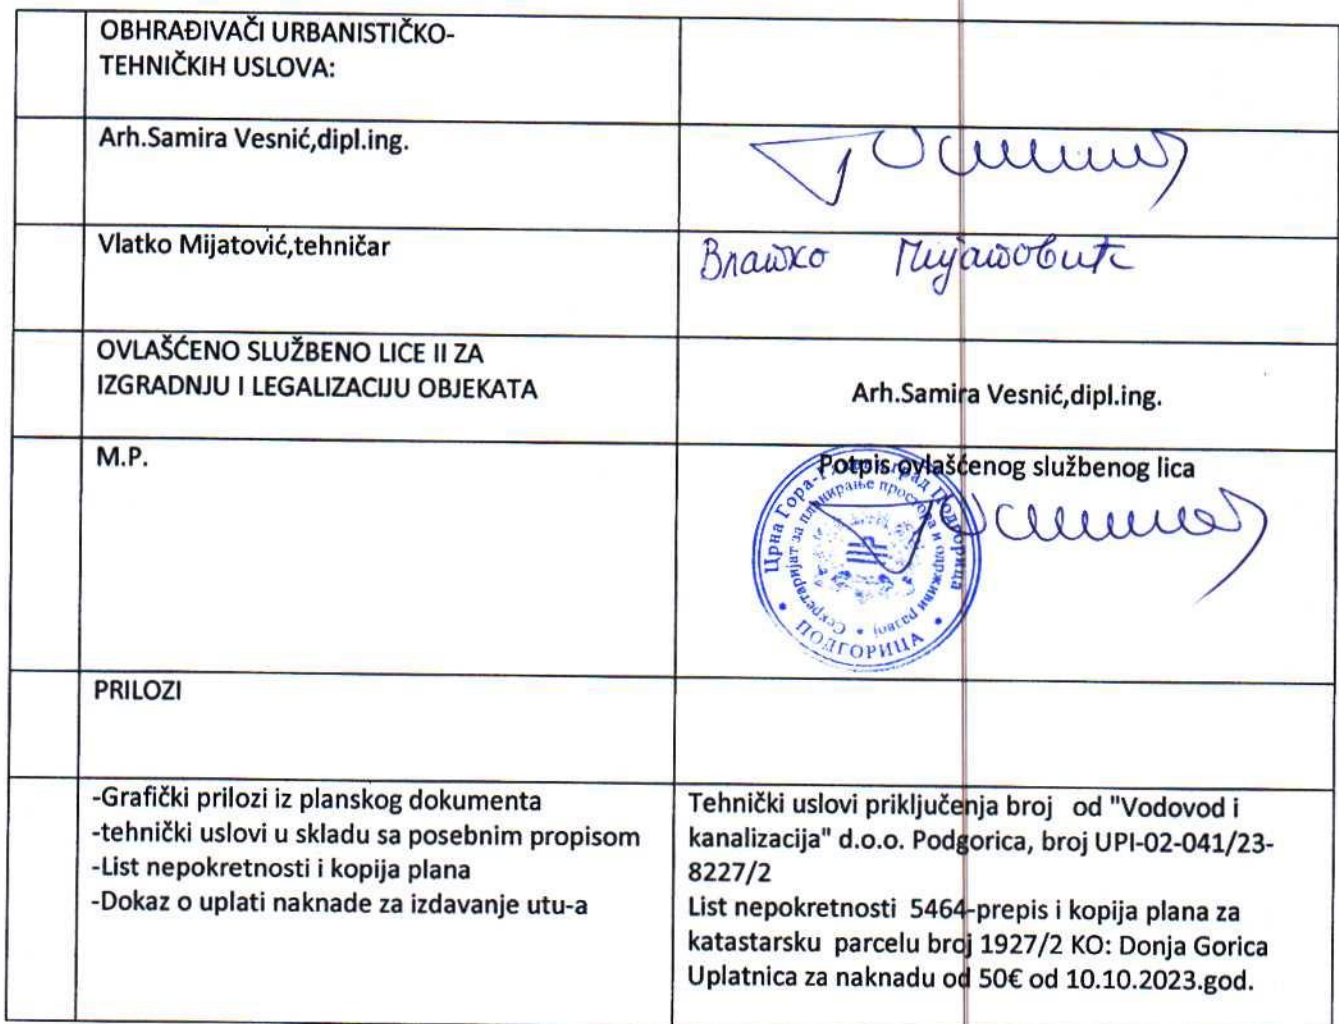 OBHRAĐIVAČI URBANISTIČKO-
TEHNIČKIH USLOVA:
Arh.Samira Vesnić,dipl.ing.
Vlatko Mijatović,tehničar
Влатко Мијатовић
OVLAŠĆENO SLUŽBENO LICE II ZA
IZGRADNJU I LEGALIZACIJU OBJEKATA
Arh.Samira Vesnić,dipl.ing.
M.P.
Potpis ovlašćenog službenog lica
Црна Гора-Главни град Подгорица
Секретаријат за планирање простора и одрживи развој
ПОДГОРИЦА
PRILOZI
-Grafički prilozi iz planskog dokumenta
-tehnički uslovi u skladu sa posebnim propisom
-List nepokretnosti i kopija plana
-Dokaz o uplati naknade za izdavanje utu-a
Tehnički uslovi priključenja broj od "Vodovod i
kanalizacija" d.o.o. Podgorica, broj UPI-02-041/23-
8227/2
List nepokretnosti 5464-prepis i kopija plana za
katastarsku parcelu broj 1927/2 KO: Donja Gorica
Uplatnica za naknadu od 50€ od 10.10.2023.god.